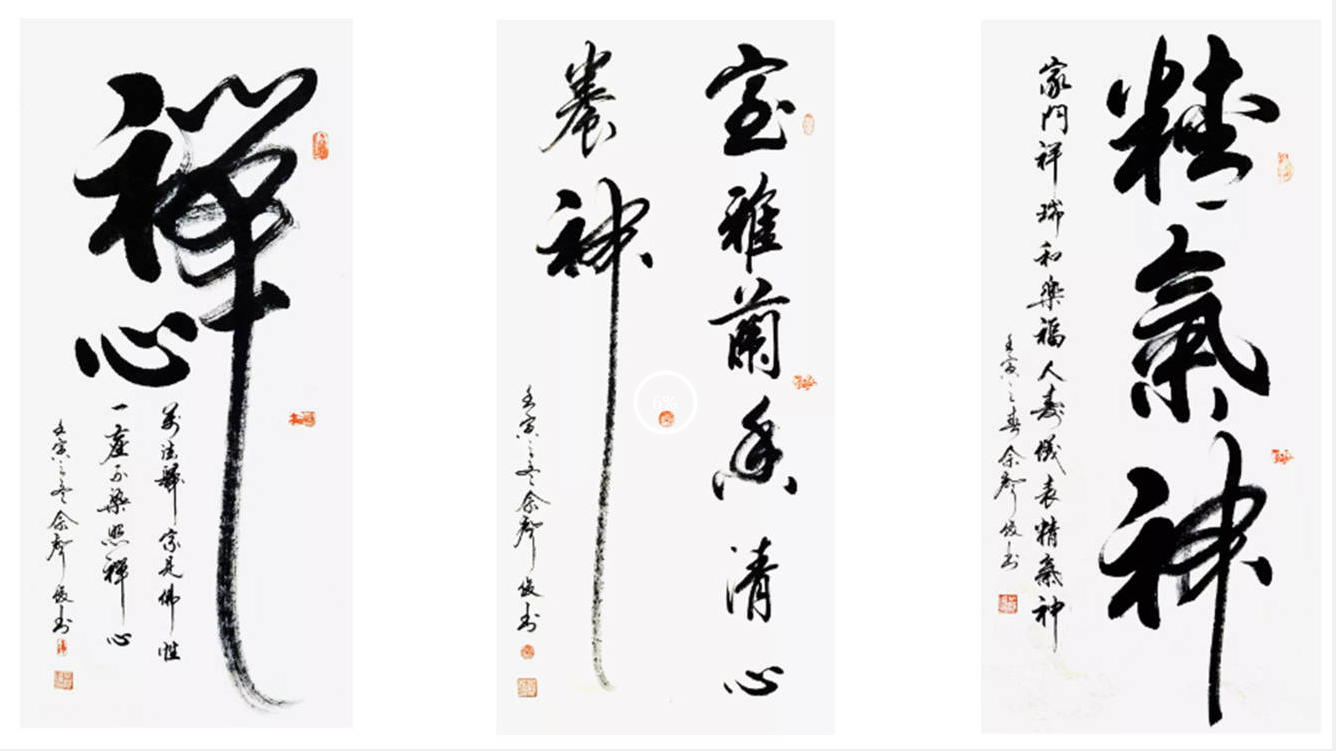 禪心
萬法歸宗見佛性
一塵不染照禪心
壬寅之冬余聲俊书
室雅蘭香清心
養神
壬寅之冬余聲俊书
6%
精氣神
家門祥瑞和樂福人壽儀表精氣神
壬寅之春余聲俊书